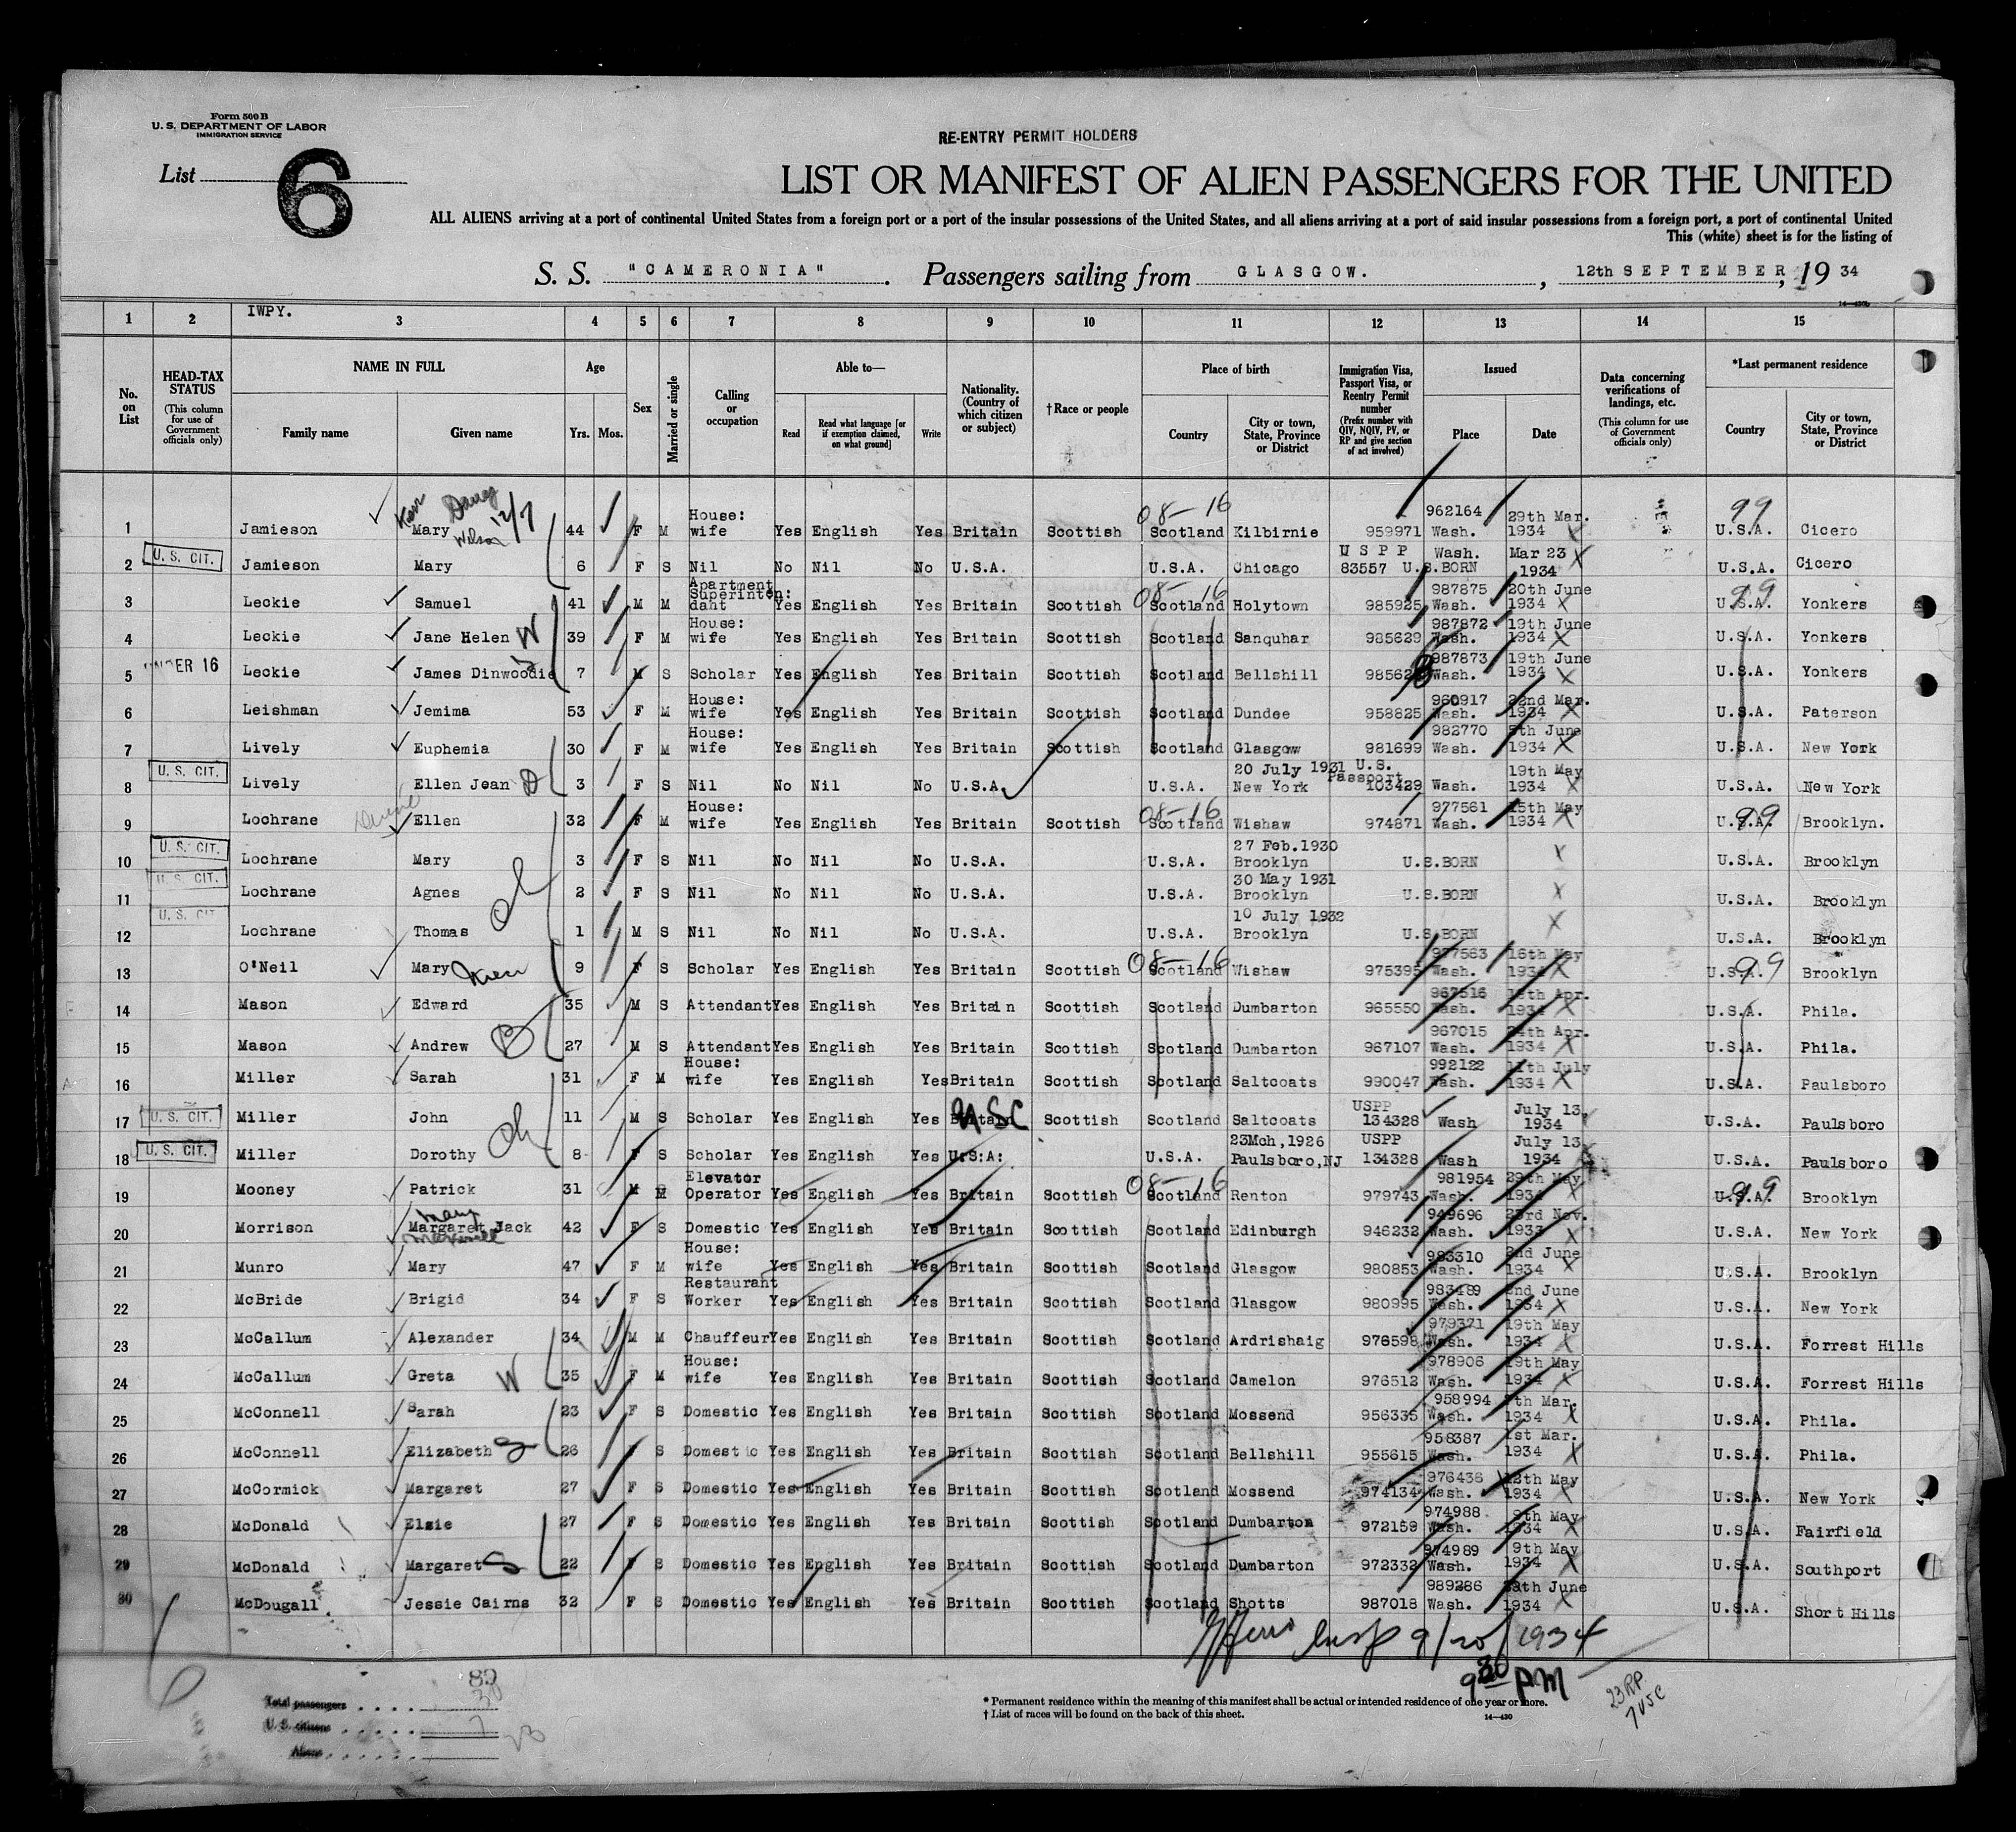 Form 500 B
U. S. DEPARTMENT OF LABOR
IMMIGRATION SERVICE
RE-ENTRY PERMIT HOLDERS
List 6
LIST OR MANIFEST OF ALIEN PASSENGERS FOR THE UNITED
ALL ALIENS arriving at a port of continental United States from a foreign port or a port of the insular possessions of the United States, and all aliens arriving at a port of said insular possessions from a foreign port, a port of continental United
This (white) sheet is for the listing of
S. S. "CAMERONIA". Passengers sailing from GLASGOW., 12th SEPTEMBER, 19 34
14—430b
IWPY.
1 2 3 4 5 6 7 8 9 10 11 12 13 14 15
No. on List
HEAD-TAX STATUS (This column for use of Government officials only)
NAME IN FULL Family name Given name
Age Yrs. Mos.
Sex
Married or single
Calling or occupation
Able to— Read Read what language [or if exemption claimed, on what ground] Write
Nationality. (Country of which citizen or subject)
†Race or people
Place of birth Country City or town, State, Province or District
Immigration Visa, Passport Visa, or Reentry Permit number (Prefix number with QIV, NQIV, PV, or RP and give section of act involved)
Issued Place Date
Data concerning verifications of landings, etc. (This column for use of Government officials only)
*Last permanent residence Country City or town, State, Province or District
1 Jamieson Mary Kerr Wilson 12/7 44 F M House: wife Yes English Yes Britain Scottish 08-16 Scotland Kilbirnie 959971 962164 Wash. 29th Mar. 1934 X 99 U.S.A. Cicero
2 U. S. CIT. Jamieson Mary 6 F S Nil No Nil No U.S.A. U.S.A. Chicago U S P P 83557 U.S.BORN Wash. Mar 23 1934 X U.S.A. Cicero
3 Leckie Samuel 41 M M Apartment Superinten: dant Yes English Yes Britain Scottish 08-16 Scotland Holytown 985925 987875 Wash. 20th June 1934 X 99 U.S.A. Yonkers
4 Leckie Jane Helen W 39 F M House: wife Yes English Yes Britain Scottish Scotland Sanquhar 985629 987872 Wash. 19th June 1934 X U.S.A. Yonkers
5 UNDER 16 Leckie James Dinwoodie 7 M S Scholar Yes English Yes Britain Scottish Scotland Bellshill 98562 987873 Wash. 19th June 1934 X U.S.A. Yonkers
6 Leishman Jemima 53 F M House: wife Yes English Yes Britain Scottish Scotland Dundee 958825 960917 Wash. 22nd Mar. 1934 X U.S.A. Paterson
7 Lively Euphemia 30 F M House: wife Yes English Yes Britain Scottish Scotland Glasgow 981699 982770 Wash. 5th June 1934 X U.S.A. New York
8 U. S. CIT. Lively Ellen Jean D 3 F S Nil No Nil No U.S.A. U.S.A. 20 July 1931 New York U.S. Passport 103429 Wash. 19th May 1934 X U.S.A. New York
9 Lochrane Ellen 32 F M House: wife Yes English Yes Britain Scottish 08-16 Scotland Wishaw 974871 977561 Wash. 15th May 1934 X 99 U.S.A. Brooklyn.
10 U. S. CIT. Lochrane Mary 3 F S Nil No Nil No U.S.A. U.S.A. 27 Feb.1930 Brooklyn U.S.BORN X U.S.A. Brooklyn
11 U. S. CIT. Lochrane Agnes ch 2 F S Nil No Nil No U.S.A. U.S.A. 30 May 1931 Brooklyn U.S.BORN X U.S.A. Brooklyn
12 U. S. CIT Lochrane Thomas 1 M S Nil No Nil No U.S.A. U.S.A. 10 July 1932 Brooklyn U.S.BORN X U.S.A. Brooklyn
13 O'Neil Mary 9 F S Scholar Yes English Yes Britain Scottish 08-16 Scotland Wishaw 975395 977563 Wash. 16th May 1934 X 99 U.S.A. Brooklyn
14 Mason Edward 35 M S Attendant Yes English Yes Britain Scottish Scotland Dumbarton 965550 967516 Wash. Apr. 1934 X U.S.A. Phila.
15 Mason Andrew B 27 M S Attendant Yes English Yes Britain Scottish Scotland Dumbarton 967107 967015 Wash. 24th Apr. 1934 X U.S.A. Phila.
16 Miller Sarah 31 F M House: wife Yes English Yes Britain Scottish Scotland Saltcoats 990047 992122 Wash. 11th July 1934 X U.S.A. Paulsboro
17 U. S. CIT. Miller John 11 M S Scholar Yes English Yes Britain USC Scottish Scotland Saltcoats USPP 134328 Wash July 13, 1934 U.S.A. Paulsboro
18 U. S. CIT. Miller Dorothy ch 8 F S Scholar Yes English Yes U.S.A. U.S.A. 23Mch,1926 Paulsboro,NJ USPP 134328 Wash July 13 1934 X U.S.A. Paulsboro
19 Mooney Patrick 31 M M Elevator Operator Yes English Yes Britain Scottish 08-16 Scotland Renton 979743 981954 Wash. 29th May 1934 X 99 U.S.A. Brooklyn
20 Morrison Mary Margaret Jack Maxwell 42 F S Domestic Yes English Yes Britain Scottish Scotland Edinburgh 946232 949696 Wash. 23rd Nov. 1933 X U.S.A. New York
21 Munro Mary 47 F M House: wife Yes English Yes Britain Scottish Scotland Glasgow 980853 983310 Wash. 2nd June 1934 X U.S.A. Brooklyn
22 McBride Brigid 34 F S Restaurant Worker Yes English Yes Britain Scottish Scotland Glasgow 980995 983489 Wash. 2nd June 1934 X U.S.A. New York
23 McCallum Alexander 34 M M Chauffeur Yes English Yes Britain Scottish Scotland Ardrishaig 976598 979371 Wash. 19th May 1934 X U.S.A. Forrest Hills
24 McCallum Greta W 35 F M House: wife Yes English Yes Britain Scottish Scotland Camelon 976512 978906 Wash. 19th May 1934 X U.S.A. Forrest Hills
25 McConnell Sarah 23 F S Domestic Yes English Yes Britain Scottish Scotland Mossend 956335 958994 Wash. 7th Mar. 1934 X U.S.A. Phila.
26 McConnell Elizabeth S 26 F S Domestic Yes English Yes Britain Scottish Scotland Bellshill 955615 958387 Wash. 1st Mar. 1934 X U.S.A. Phila.
27 McCormick Margaret 27 F S Domestic Yes English Yes Britain Scottish Scotland Mossend 974134 976436 Wash. 12th May 1934 X U.S.A. New York
28 McDonald Elsie 27 F S Domestic Yes English Yes Britain Scottish Scotland Dumbarton 972159 974988 Wash. 9th May 1934 X U.S.A. Fairfield
29 McDonald Margaret S 22 F S Domestic Yes English Yes Britain Scottish Scotland Dumbarton 972332 974989 Wash. 9th May 1934 X U.S.A. Southport
30 McDougall Jessie Cairns 32 F S Domestic Yes English Yes Britain Scottish Scotland Shotts 987018 989286 Wash. June 1934 X U.S.A. Short Hills
Insp 9/20/1934
9 30 PM
Total passengers 30
U. S. citizens 7
Aliens 23
* Permanent residence within the meaning of this manifest shall be actual or intended residence of one year or more.
† List of races will be found on the back of this sheet.
14—430
23 RP
7 USC